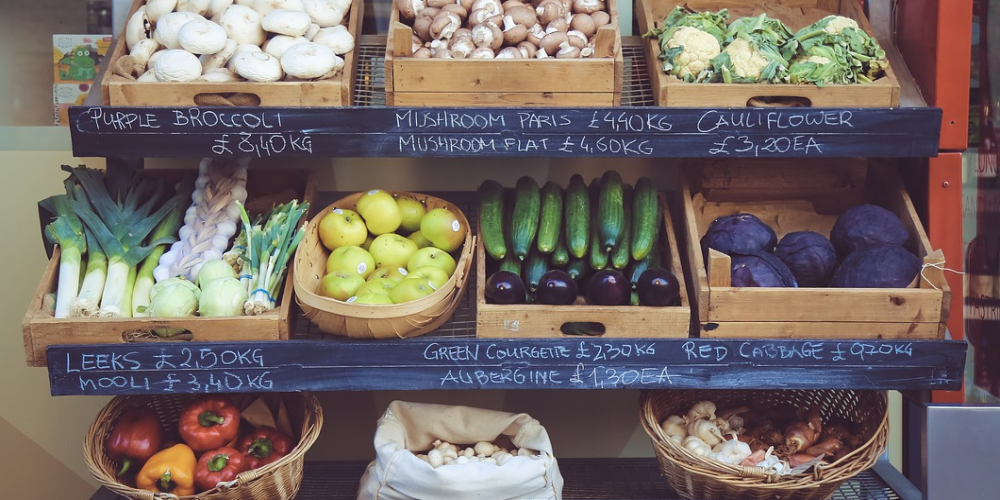 PURPLE BROCCOLI
£8,40KG
MUSHROOM PARIS £4,40KG
MUSHROOM FLAT £4,60KG
CAULIFLOWER
£3,20EA
LEEKS £2,50KG
MOOLI £3,40KG
GREEN COURGETTE £2,30KG
AUBERGINE £1,30EA
RED CABBAGE £0,70KG